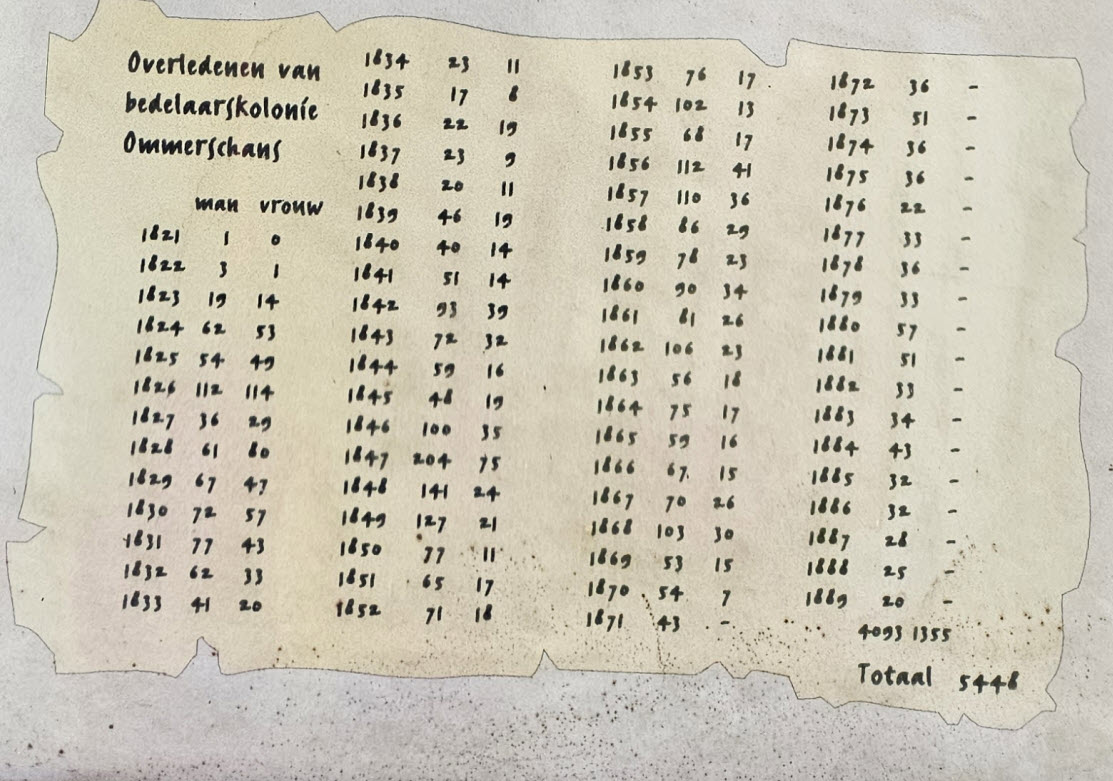 Overledenen van
bedelaarskolonie
Ommerschans
man vrouw
1821 1 0
1822 3 1
1823 19 14
1824 62 53
1825 54 49
1826 112 114
1827 36 29
1828 61 80
1829 67 47
1830 72 57
1831 77 43
1832 62 33
1833 41 20
1834 23 11
1835 17 8
1836 22 19
1837 23 9
1838 20 11
1839 46 19
1840 40 14
1841 51 14
1842 93 39
1843 72 32
1844 59 16
1845 48 19
1846 100 35
1847 204 75
1848 141 24
1849 127 21
1850 77 11
1851 65 17
1852 71 18
1853 76 17
1854 102 13
1855 68 17
1856 112 41
1857 110 36
1858 86 29
1859 78 23
1860 90 34
1861 81 26
1862 106 23
1863 56 18
1864 75 17
1865 59 16
1866 67. 15
1867 70 26
1868 103 30
1869 53 15
1870 54 7
1871 43 -
1872 36 -
1873 51 -
1874 36 -
1875 36 -
1876 22 -
1877 33 -
1878 36 -
1879 33 -
1880 57 -
1881 51 -
1882 33 -
1883 34 -
1884 43 -
1885 32 -
1886 32 -
1887 28 -
1888 25 -
1889 20 -
4093 1355
Totaal 5448